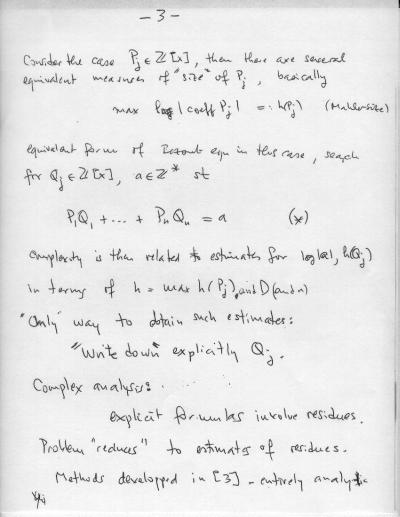 -3-
Consider the case Pj ∈ Z[x], then there are several
equivalent measures of "size" of Pj, basically
max log |coeff Pj| =: h(Pj) (Mahler size)
equivalent form of Bezout eqn in this case, search
for Qj ∈ Z[x], a ∈ Z* st
P1Q1 + ... + PnQn = a (*)
complexity is then related to estimates for log|a|, h(Qj)
in terms of h = max h(Pj), and D (and n)
"Only" way to obtain such estimates:
"Write down" explicitly Qj.
Complex analysis:
explicit formulas involve residues.
Problem "reduces" to estimates of residues.
Methods developped in [3] - entirely analytic